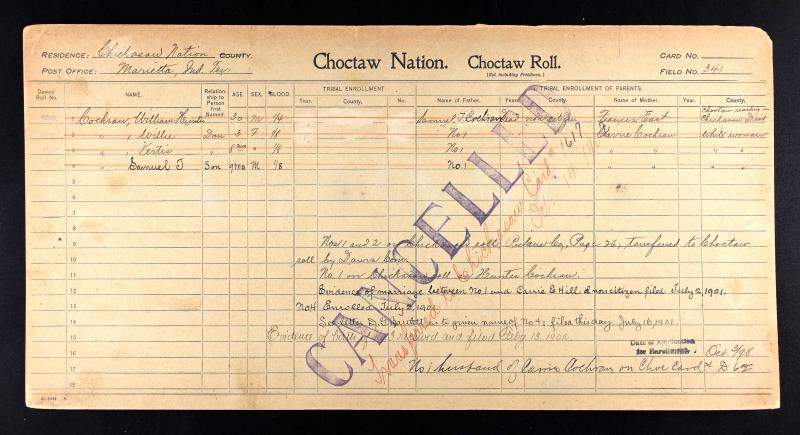 RESIDENCE: Chickasaw Nation COUNTY.
POST OFFICE: Marietta, Ind. Ter.
Choctaw Nation. Choctaw Roll.
(Not including Freedmen.)
CARD NO.
FIELD NO. 341
Dawes Roll No. NAME. Relationship to Person first Named. AGE. SEX. BLOOD TRIBAL ENROLLMENT Year. County. No. TRIBAL ENROLLMENT OF PARENTS. Name of Father. Year. County. Name of Mother. Year. County.
1 Cochran, William Hunter 30 M 1/4 Samuel T Cochran Dead non citizen Frances East Choctaw residing in Chickasaw Dist
2 " , Willie Dau 3 F 1/8 No 1 Carrie Cochran White woman
3 " , Vertis " 8mo " 1/8 No 1 " " "
4 " Samuel T Son 9mo M 1/8 No.1 " " "
5
6
7
8
9 Nos 1 and 2 on Chickasaw roll, Pickens Co, Page 26, transferred to Choctaw
10 roll by Dawes Com
11 No. 1 on Chickasaw roll as Hunter Cochran.
12 Evidence of marriage between No 1 and Carrie E Hill a noncitizen filed July 2, 1901.
13 No4 Enrolled July 2, 1901
14 as to given name of No 4; filed this day July 16, 1901.
15 Evidence of birth of received and filed 13 1902
16 Date of Application for Enrollment. Oct 3/98
17 No 1 husband of Carrie Cochran on Choc Card # D 62
18
CANCELLED
Transferred to Chickasaw Card # 1617